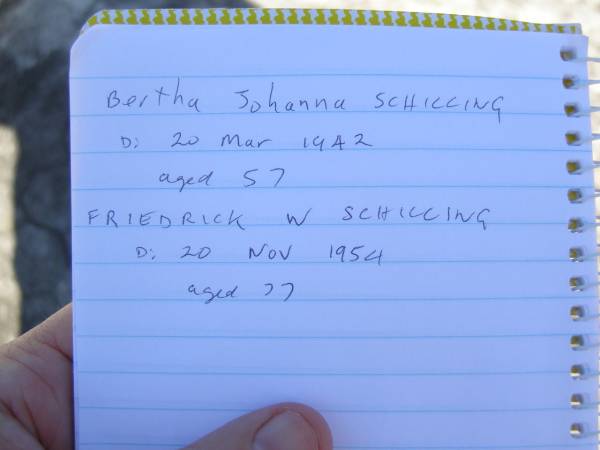 Bertha Johanna SCHILLING
D: 20 Mar 1942
aged 57
FRIEDRICK W SCHILLING
D: 20 Nov 1954
aged 77